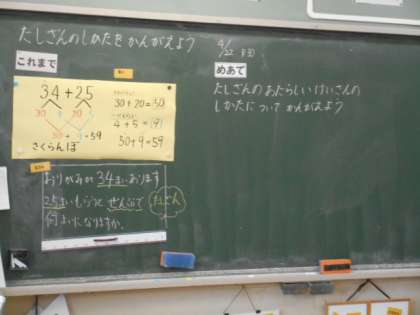 たしざんのしかたをかんがえよう
これまで
34+25
30 4 20 5
30+20=50
4+5=9
50+9=59
50+9=59
さくらんぼ
おりがみが34まいあります
25まいもらうとぜんぶで
何まいになりますか。
たしざん
4/22
めあて
たしざんのあたらしいけいさんの
しかたについてかんがえよう